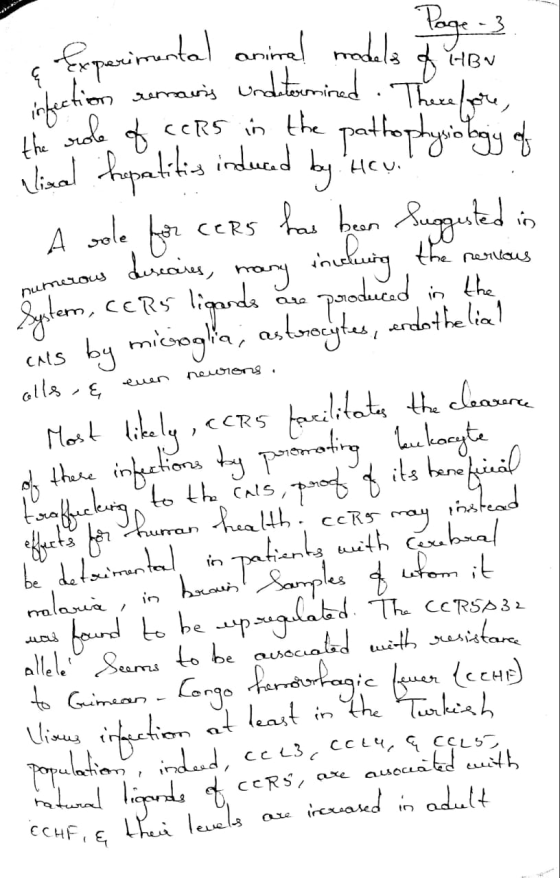 Page - 3
& Experimental animal models of HBV
infection remains undetermined. Therefore,
the role of CCR5 in the pathophysiology of
Viral hepatitis induced by HCV.
A role for CCR5 has been Suggested in
numerous diseases, many involving the nervous
System, CCR5 ligands are produced in the
CNS by microglia, astrocytes, endothelial
cells, & even neurons.
Most likely, CCR5 facilitates the clearence
of these infections by promoting leukocyte
trafficking to the CNS, proof of its beneficial
effects for human health. CCR5 may instead
be detrimental in patients with Cerebral
malaria, in brain Samples of whom it
was found to be upregulated. The CCR5Δ32
allele Seems to be associated with resistance
to Crimean - Congo hemorrhagic fever (CCHF)
Virus infection at least in the Turkish
population, indeed, CCL3, CCL4, & CCL5,
natural ligands of CCR5, are associated with
CCHF, & their levels are increased in adult